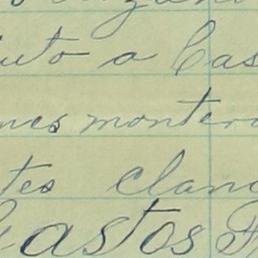 uto a Cas
nes montero
tes clan
Gastos F